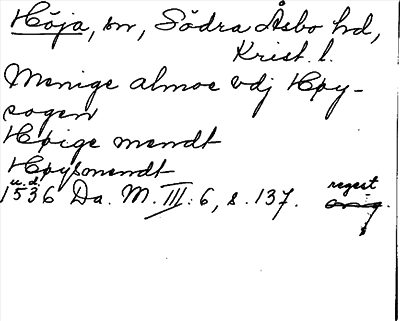 Höja, sn, Södra Åsbo hd,
Krist. l.
Menige almoe vdj Høy-
sogen
Høige mendt
Høysmendt
u. d.
1536 Da. M. III: 6, s. 137. regest
orig.